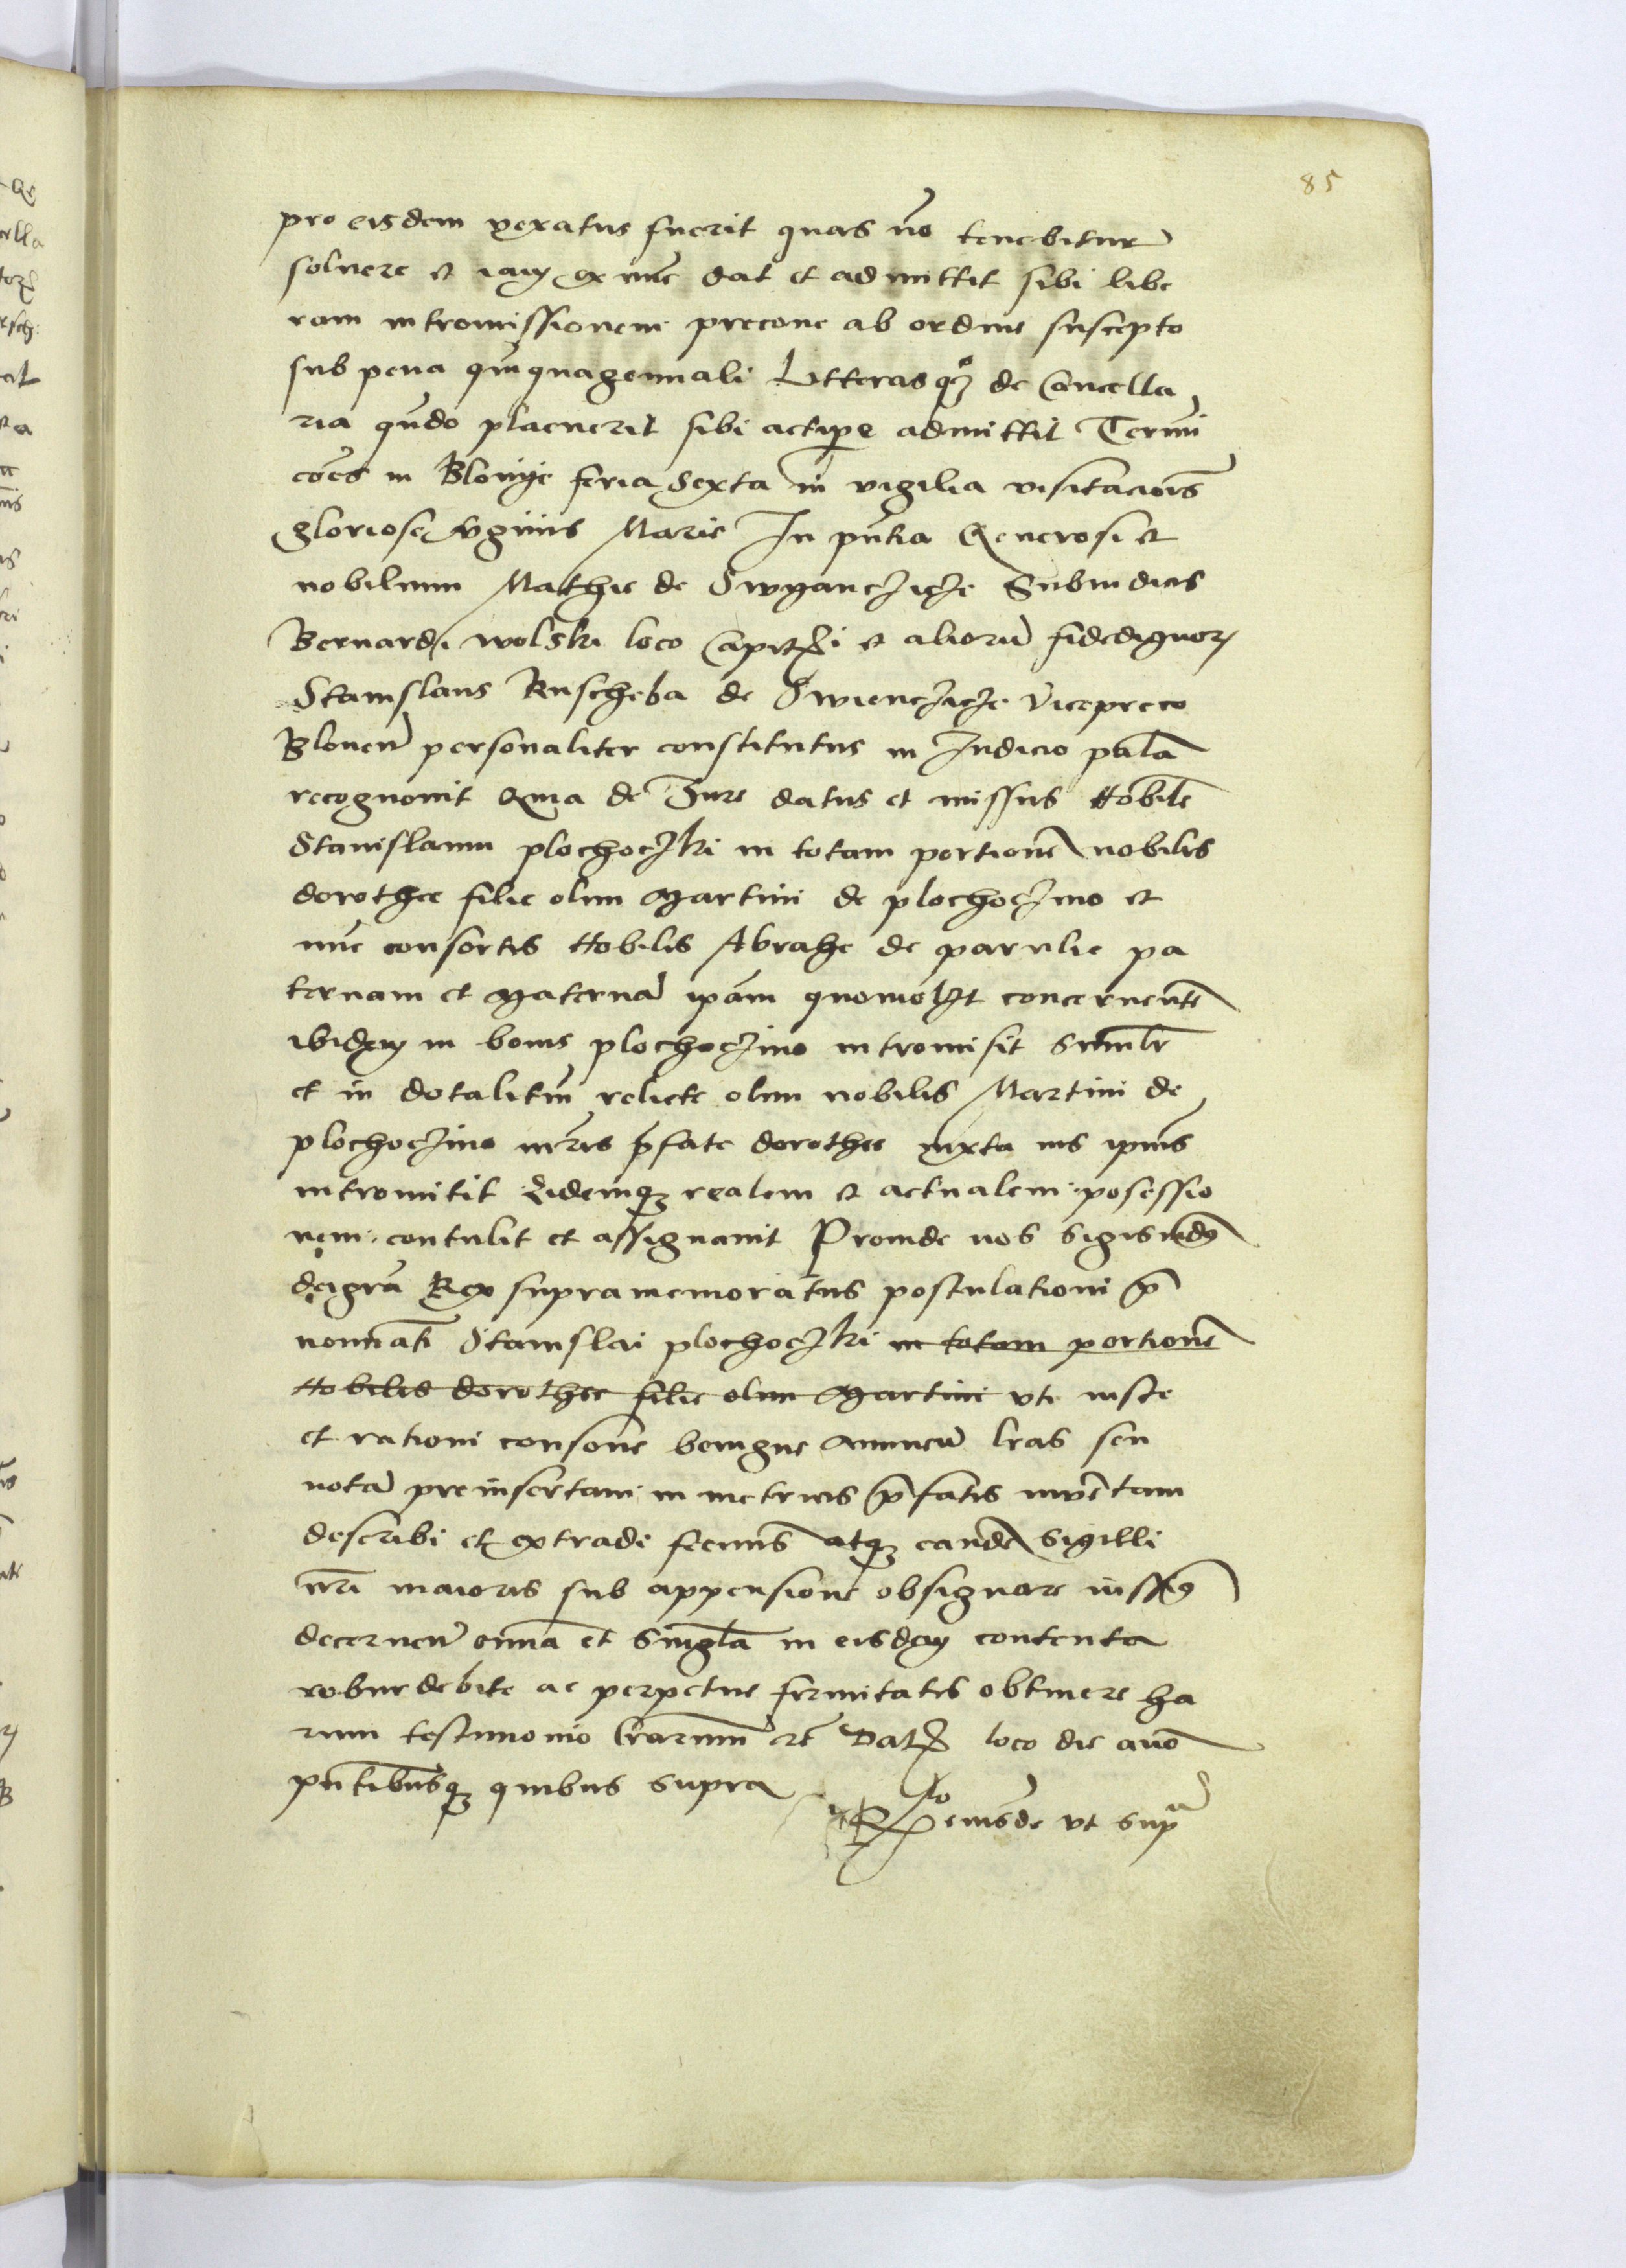 85
pro eisdem vexatus fuerit quas no tenebitur
soluere et iam ex nuc dat et admittit sibi libe
ram intromissionem precone ab ordine suscepto
sub pena quinquagennali Litterasqz de Cancella
ria qudo placuerit sibi accipe admittit Termi
coes in Blonye feria Sexta in vigilia visitacois
gloriose vginis Marie In pntia Generosi et
nobilium Mathie de Swyanczicze Subiudicis
Bernardi wolski loco Capit et alioru fidedignor
Stanislaus Ruscheba de Swienczicze Vicepreco
Blonen personaliter constitutus in Iudicio pala
recognouit Quia de Iure datus et missus Nobile
Stanislaum plochoczki in totam portione nobilis
dorothee filie olim Martini de plochoczino et
nuc consortis Nobilis Abrahe de parulie pa
ternam et Materna ipam quomolt concernente
ibidem in bonis plochoczino intromisit Similr
et in dotalitiu relicte olim nobilis Martini de
plochoczino mris pfate dorothee iuxta ius ipius
intromitit Eidemqz realem et actualem posessio
nem contulit et assignauit Proinde nos Sigismdg
deigra Rex supramemoratus postulationi p
nominati Stanislai plochoczki in totam portione
Nobilis dorothee filie olim Martini vti iuste
et rationi consone benigne Annuen lras seu
nota preinsertam in metricis pfatis inuentam
describi et extradi fecimus atqz eande Sigilli
nri maioris sub appensione obsignare iussimg
decernen omia et Singla in eisdem contenta
robur debite ac perpetue firmitatis obtinere ha
rum testimonio lrarum etc Dat loco die ano
pntibusqz quibus supra
eiusde vt supa